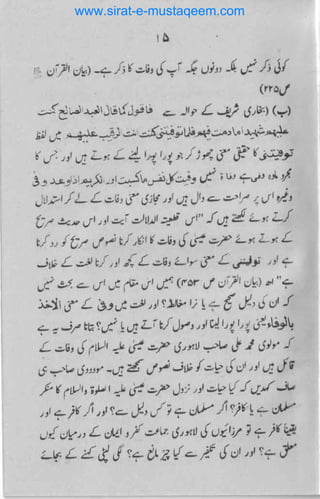 www.sirat-e-mustaqeem.com
۱۵
کوئی ذکر نہیں بلکہ دونوں جگہ آپ کی وفات کا ذکر ہے۔ (بیان القرآن
ص ۲۲۵)
(ب) بخاری شریف کے حوالہ سے فاقول کما قال العبد الصالح کنت
علیہم شہیدا ما دمت فیہم فلما توفیتنی کنت انت الرقیب علیہم میں لفظ
توفیتنی کا حقیقی معنی چھوڑ کر جو پورا پورا لینے کے ہوتے ہیں اور جس کا
مجرد مادہ وفی ہے وفاۃ نہیں
وغیرہ اس پر صراحت سے دال ہیں اور مجازی معنی وفات کے لے کر استدلال
کرتے ہوئے لکھتے ہیں کہ "اس قطعیۃ الدلالت آیت اور اس حدیث صریح
کے ہوتے ہوئے حضرت عیسیٰ کی وفات کا انکار کرنا نصوص صریح کو رد کرنا
ہے اور توفیتنی کے معنی سوائے وفات کے کچھ کرنا لغت کے خلاف
ہے" اھ (بیان القرآن ص ۲۵۳) ہمیں اس مقام میں اس سے بحث نہیں
کہ ان کی دلیل صحیح ہے یا نرا مغالطہ؟ اور لغت میں وفی کے معنی الاخذ
بالوفاء یعنی پورا پورا لینا اور وصول کرنا آتے ہیں یا نہیں؟ بتانا صرف یہ ہے
کہ مولوی محمد علی صاحب لاہوری حضرت عیسیٰ علیہ السلام کی وفات کے
قائل ہیں اور ان کی حیات کو خلاف نصوص سمجھتے ہیں۔ مودودی صاحب ہی
صاف کہدیں کہ کیا حیات اور نزول حضرت عیسیٰ علیہ الصلوۃ والسلام کا منکر
مسلمان ہے یا کافر؟ اگر مسلمان ہے تو کس دلیل سے؟ اور اگر کافر ہے اور
یقیناً کافر ہے تو مرزائیوں کی لاہوری جماعت کفر و ایمان کے درمیان کیوں
معلق ہے؟ اور ان کی تکفیر سے کیا چیز مانع ہے؟ لگی لپٹی کہنے کے بجائے